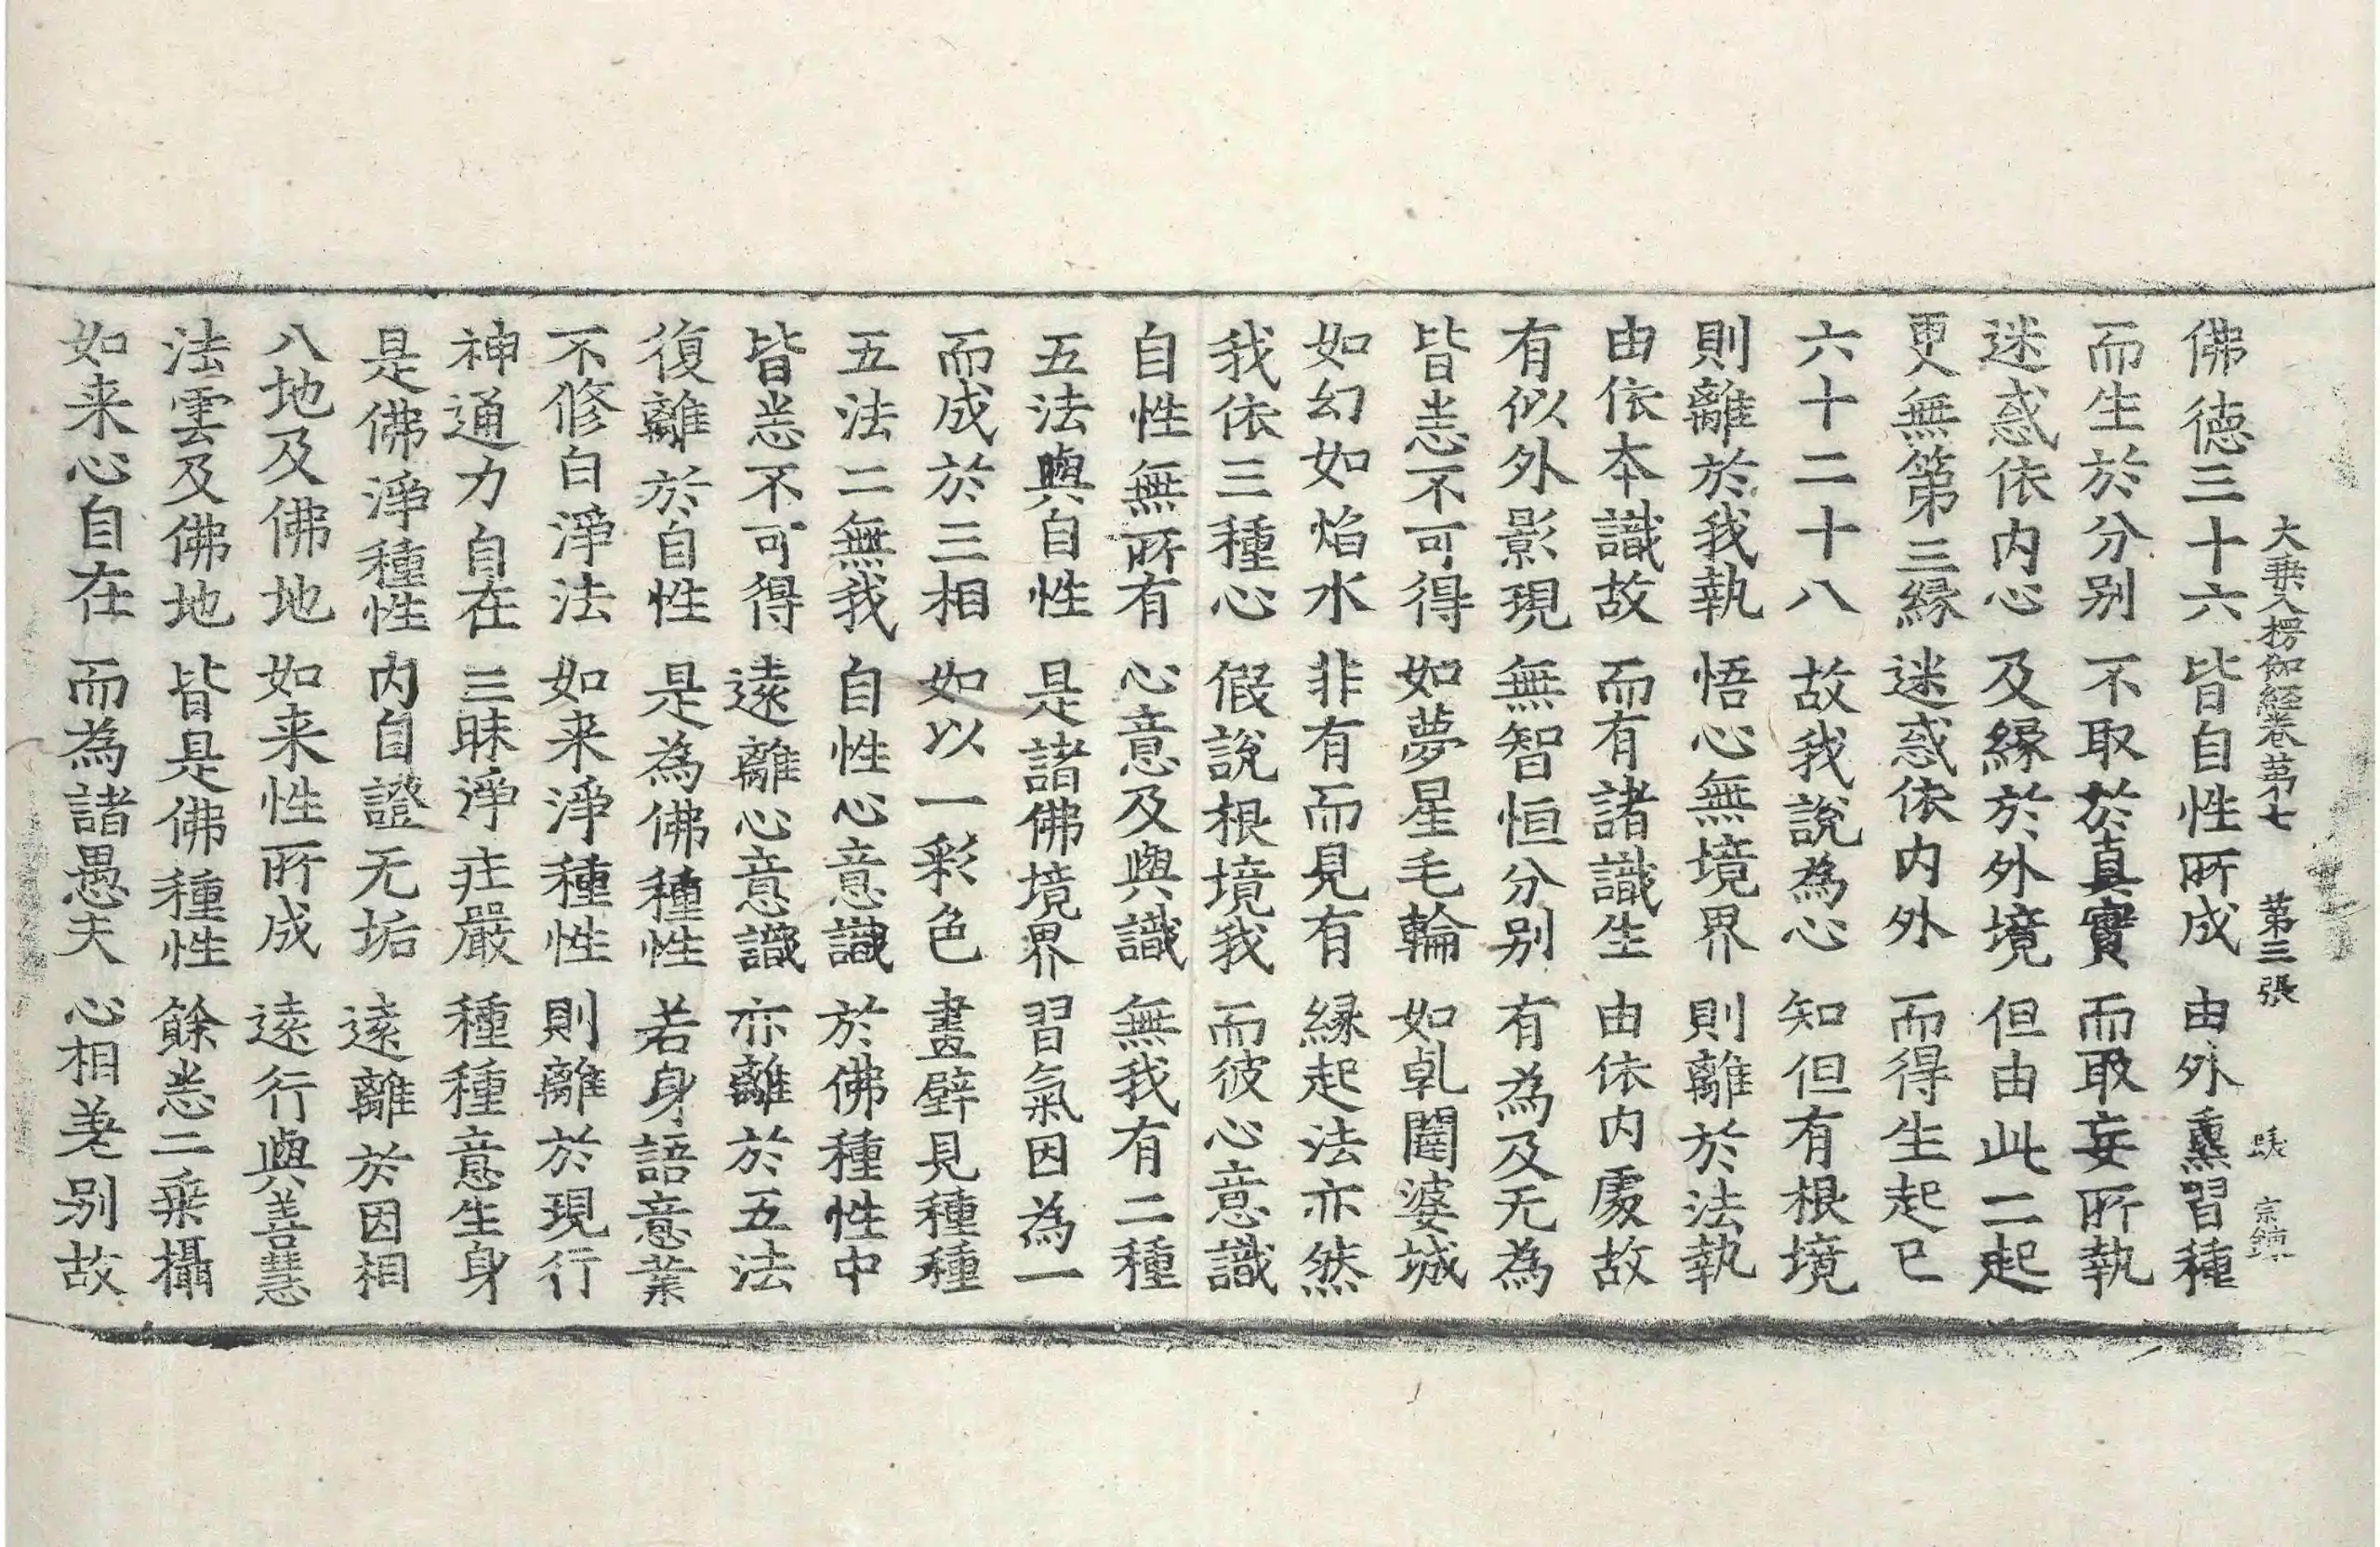 大乘入楞伽經卷第七　第三張　宗鏡
佛德三十六　皆自性所成　由外熏習種
而生於分别　不取於真實　而取妄所執
迷惑依内心　及縁於外境　但由此二起
更無第三縁　迷惑依内外　而得生起已
六十二十八　故我説為心　知但有根境
則離於我執　悟心無境界　則離於法執
由依本識故　而有諸識生　由依内處故
有似外影現　無智恒分别　有為及无為
皆悉不可得　如夢星毛輪　如乹闥婆城
如幻如焰水　非有而見有　縁起法亦然
我依三種心　假說根境我　而彼心意識
自性無所有　心意及與識　無我有二種
五法與自性　是諸佛境界　習氣因為一
而成於三相　如以一彩色　畫壁見種種
五法二無我　自性心意識　於佛種性中
皆悉不可得　遠離心意識　亦離於五法
復離於自性　是為佛種性　若身語意業
不修白淨法　如来淨種性　則離於現行
神通力自在　三昧淨莊嚴　種種意生身
是佛淨種性　内自證无垢　遠離於因相
八地及佛地　如来性所成　遠行與善慧
法雲及佛地　皆是佛種性　餘悉二乗攝
如来心自在　而為諸愚夫　心相差别故